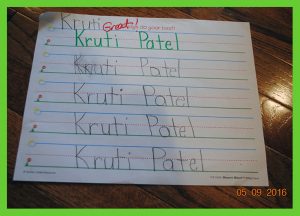 Kruti Great! do your best!
Kruti Patel
Kruti Patel
Kruti Patel
Kruti Patel
Kruti Patel
05 09 2016